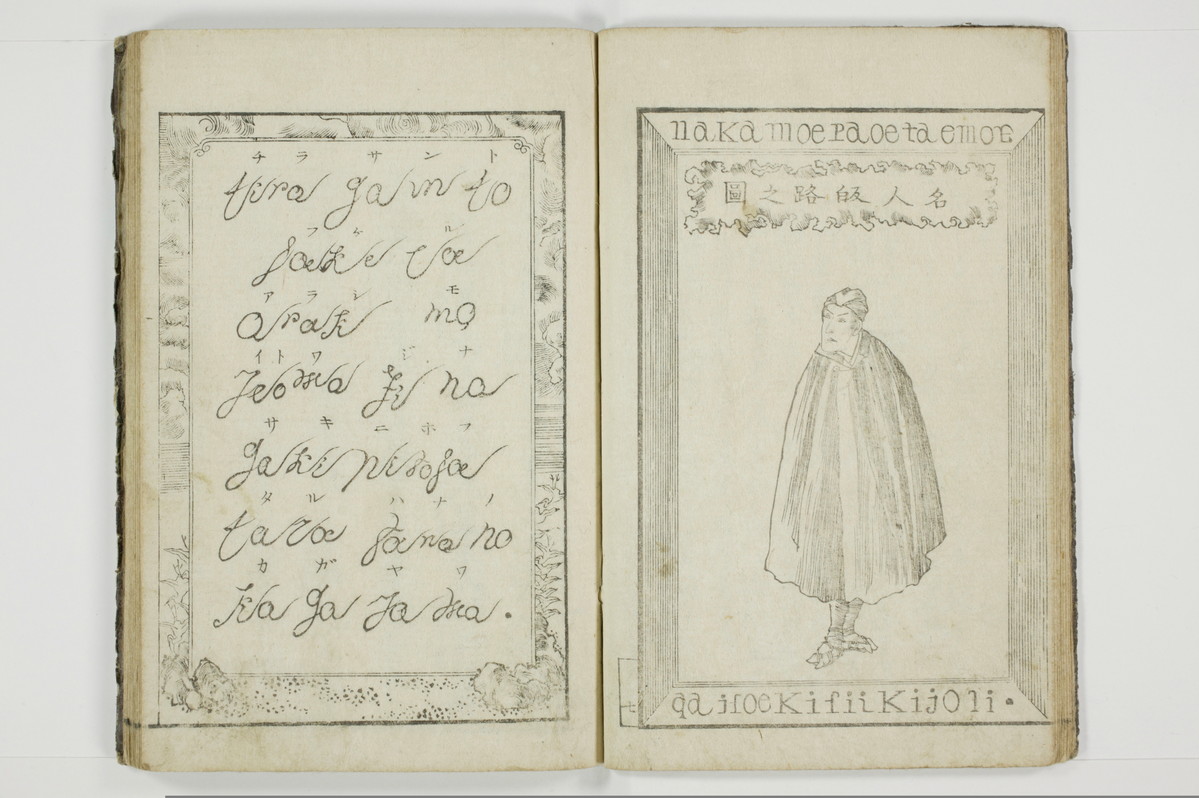 チ ラ サ ン ト
tira ſa n to
フ ケ ル
foeke roe
ア ラ シ モ
araſi mo
イ ト ワ ジ ナ
ito wa ſi na
サ キ ニ ホ フ
ſaki nihofoe
タ ル ハ ナ ノ
taroe fana no
カ ガ ヤ ワ
ka ga ja wa.
naKa moeraoetaemor
名人皈路之圖
qaiſoeKiſiiKijOli.